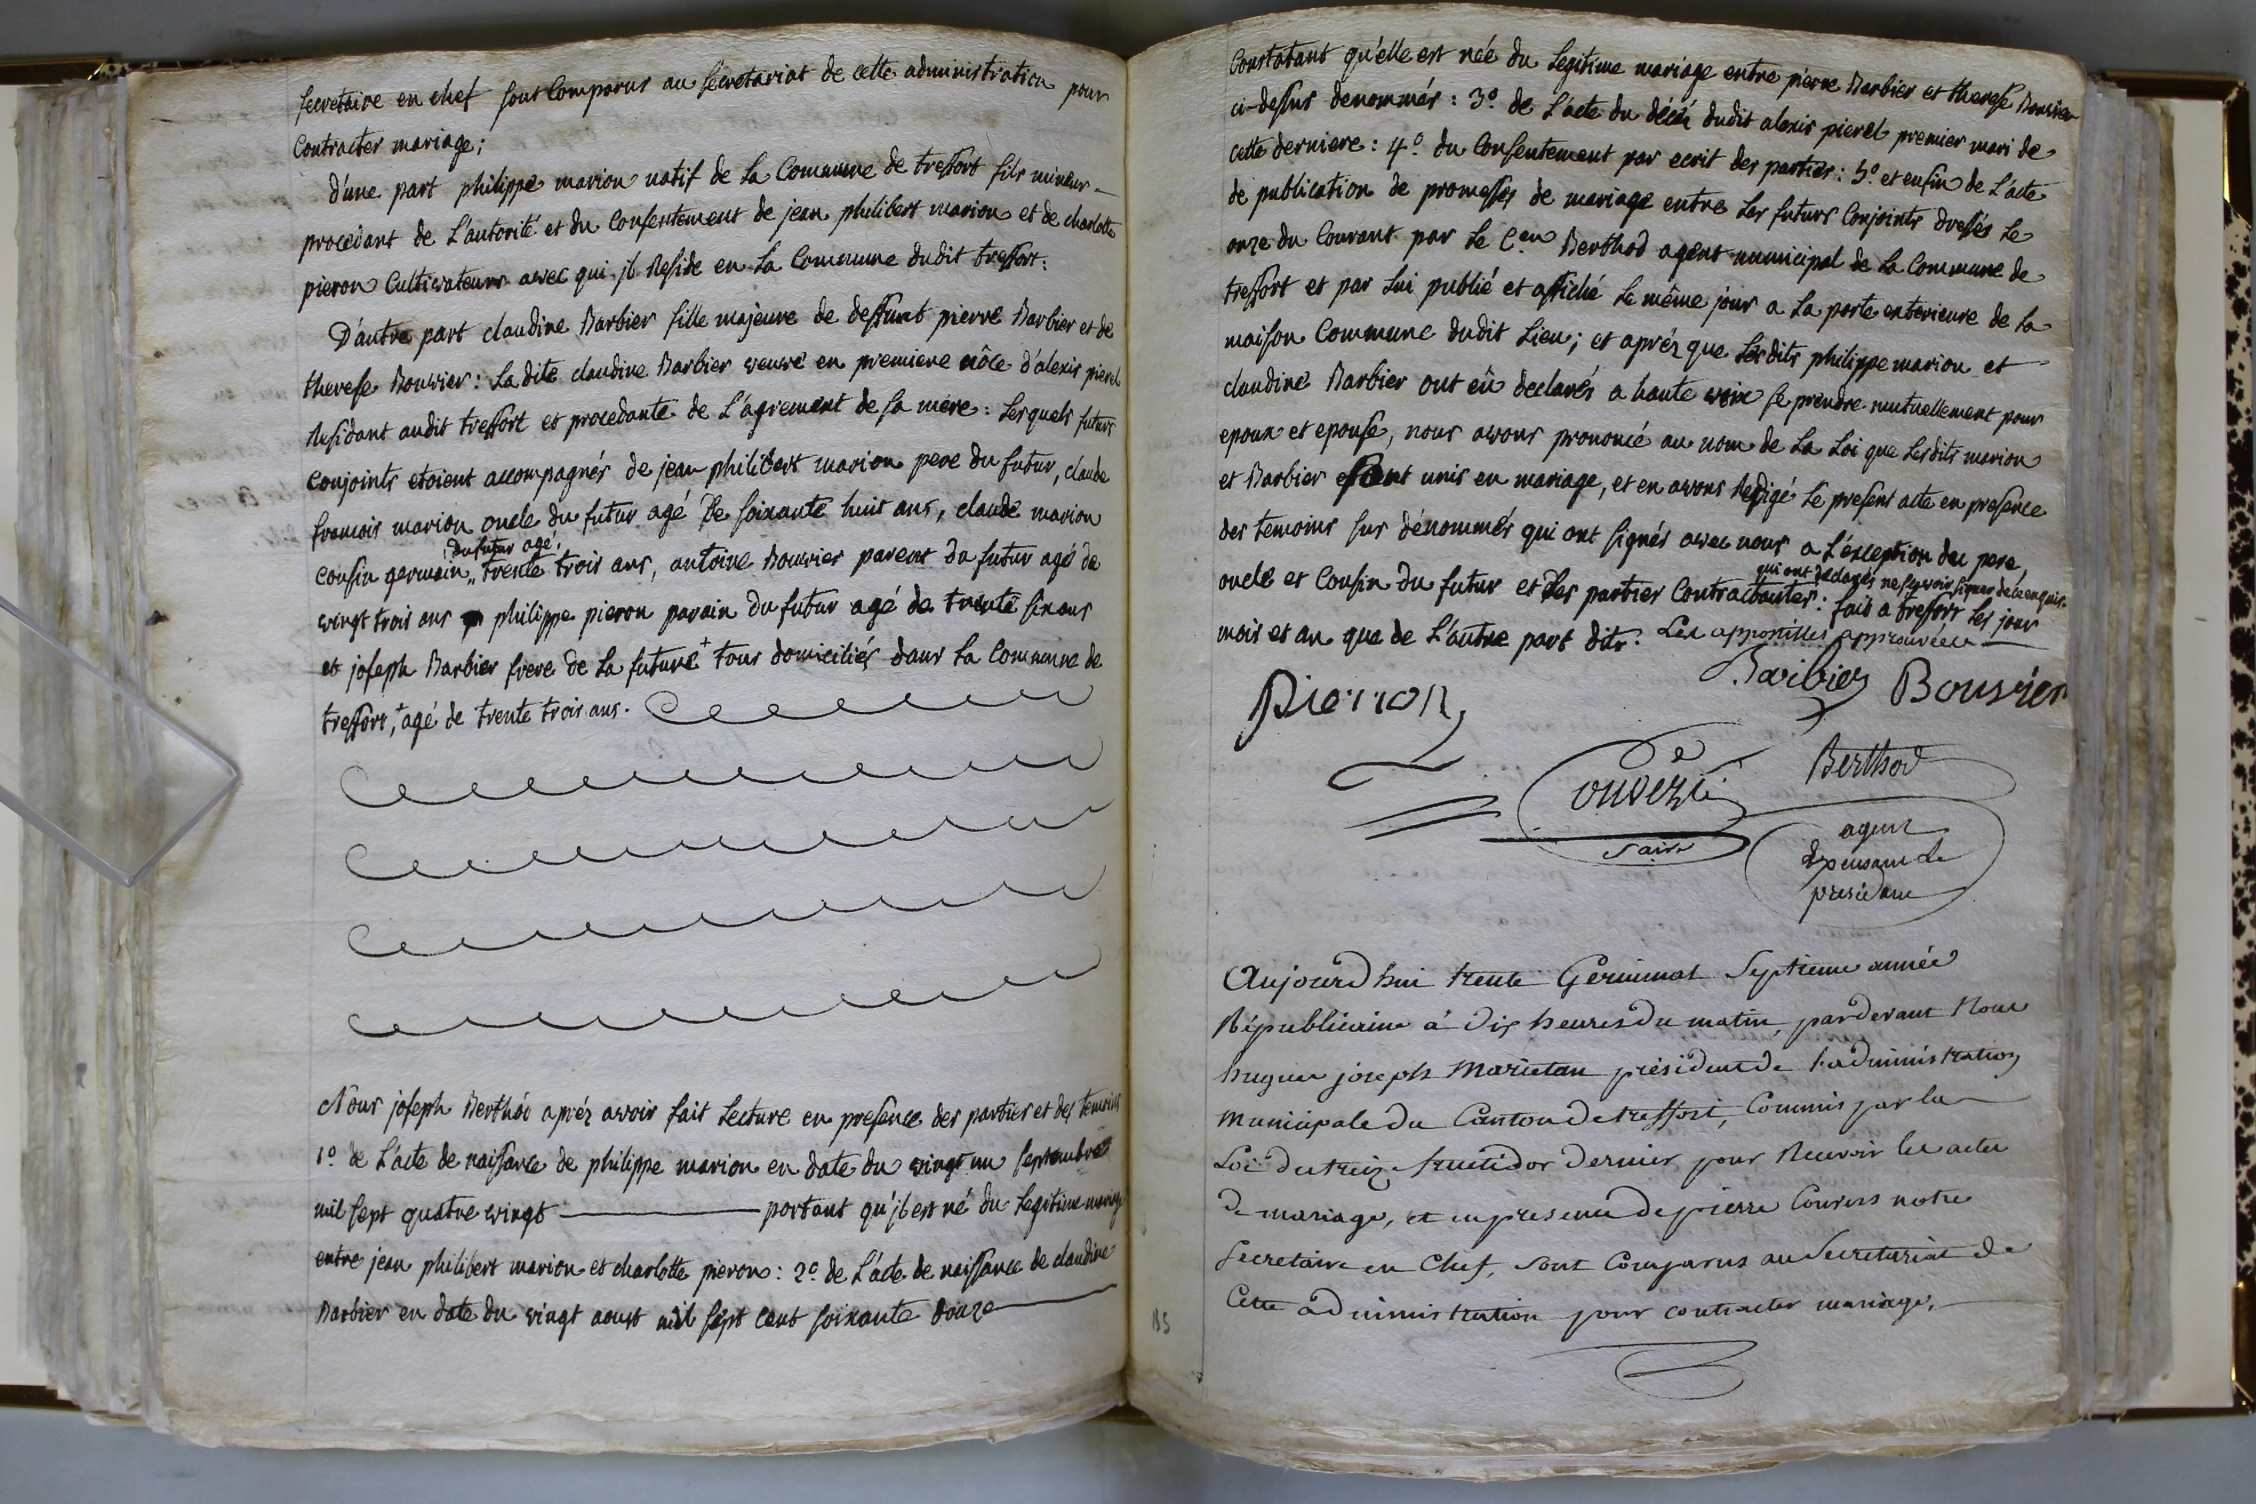 secretaire en chef sont Comparus au secretariat de cette administration pour
Contracter mariage;
d'une part philippe marion natif de la Commune de treffort fils mineur
procedant de L'autorité et du Consentement de jean philibert marion et de charlotte
pieron Cultivateurs avec qui jl Reside en la Commune dudit treffort:
D'autre part claudine Barbier fille majeure de deffunt pierre Barbier et de
therese Bouvier: La dite claudine Barbier veuve en premiere nôce d'alexis pierel
Residant audit treffort et procedante de L'agrement de sa mere: Lesquels futurs
conjoints etoient accompagnés de jean philibert marion pere du futur, claude
francois marion oncle du futur agé de soixante huit ans, claude marion
cousin germain "du futur agé" trente trois ans, antoine Bouvier parent du futur agé de
vingt trois ans philippe pieron parain du futur agé de trente six ans
et joseph Barbier frere de la future + tous domiciliés dans la Commune de
treffort, + agé de trente trois ans.
Nous joseph Berthod aprés avoir fait Lecture en presence des parties et des temoins
1o de L'acte de naissance de philippe marion en date du vingt un septembre
mil sept quatre vingt portant qu'jl est né du Legitime mariage
entre jean philibert marion et charlotte pieron: 2o de L'acte de naissance de claudine
Barbier en date du vingt aoust mil sept cent soixante douze
185
Constatant qu'elle est née du Legitime mariage entre pierre Barbier et therese Bouvier
ci-dessus denommés: 3o de L'acte du décés dudit alexis pierel premier mari de
cette derniere: 4o du Consentement par ecrit des parties: 5o et enfin de L'acte
de publication de promesses de mariage entre Les futurs Conjoints dressés Le
onze du Courant par Le Cen Berthod agent municipal de la Commune de
treffort et par Lui publié et affiché Le même jour a La porte exterieure de la
maison Commune dudit Lieu; et aprés que Lesdits philippe marion et
claudine Barbier ont eû declarés a haute voix se prendre mutuellement pour
epoux et epouse, nous avons prononcé au nom de La Loi que Lesdits marion
et Barbier sont unis en mariage, et en avons Redigé Le present acte en presence
des temoins sus dénommés qui ont signés avec nous a L'exception du pere,
oncle et Cousin du futur et des parties Contractantes: qui ont declarés ne sçavoir signer de ce enquis. fait a treffort Les jour
mois et an que de L'autre part dits. Les appostilles approuvées
Barbier Bouvier
Pieron
Berthod
agent
president
Aujourd'hui trente Germinal Septieme année
Républicaine à dix heures du matin, pardevant Nous
hugues joseph Marietan président de l'administration
Municipale du Canton de treffort, Commis par la
Loi du treize fructidor dernier pour Recevoir les actes
de mariage, et en presence de pierre Couvers notre
Secretaire en Chef, sont Comparus au Secretariat de
Cette administration pour contracter mariage,